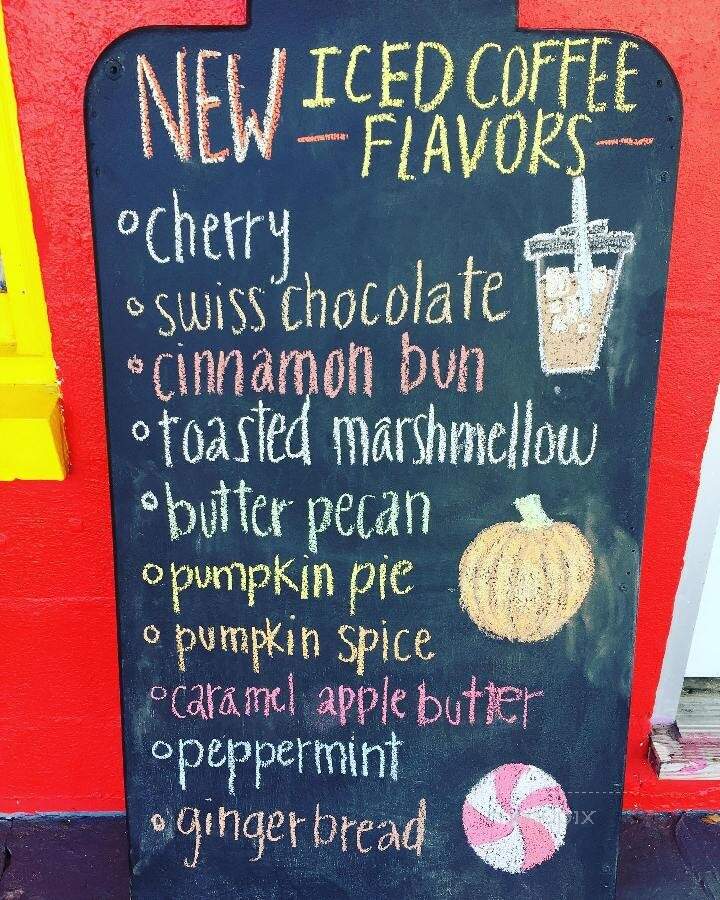 NEW ICED COFFEE
FLAVORS
cherry
swiss chocolate
cinnamon bun
toasted marshmellow
butter pecan
pumpkin pie
pumpkin spice
caramel apple butter
peppermint
gingerbread